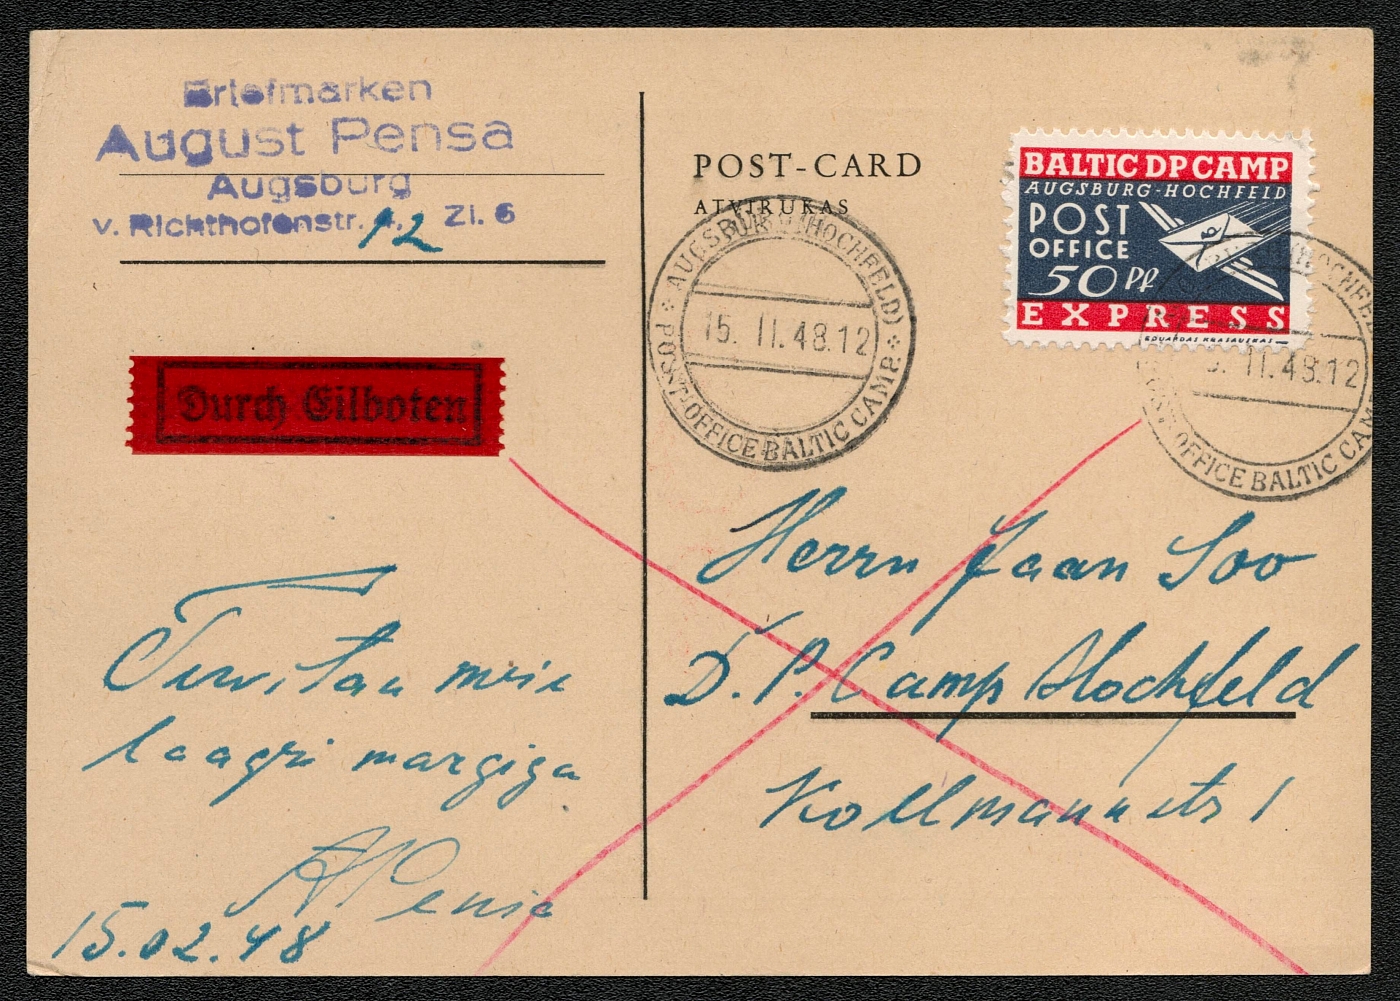 Briefmarken
August Pensa
Augsburg
v. Richthofenstr. 12, Zi. 6
POST-CARD
ATVIRUKAS
BALTIC DP CAMP
AUGSBURG-HOCHFELD
POST
OFFICE
50 Pf
EXPRESS
EDUARDAS KRASAUSKAS
AUGSBURG (HOCHFELD)
15. II. 48. 12
POST-OFFICE BALTIC CAMP
HOCHFEL
5. II. 48. 12
OFFICE BALTIC CAM
Durch Eilboten
Herrn Jaan Soo
D. P. Camp Hochfeld
Kollmannstr 1
Tervitan meie
laagri margiga
A Pensa
15.02.48